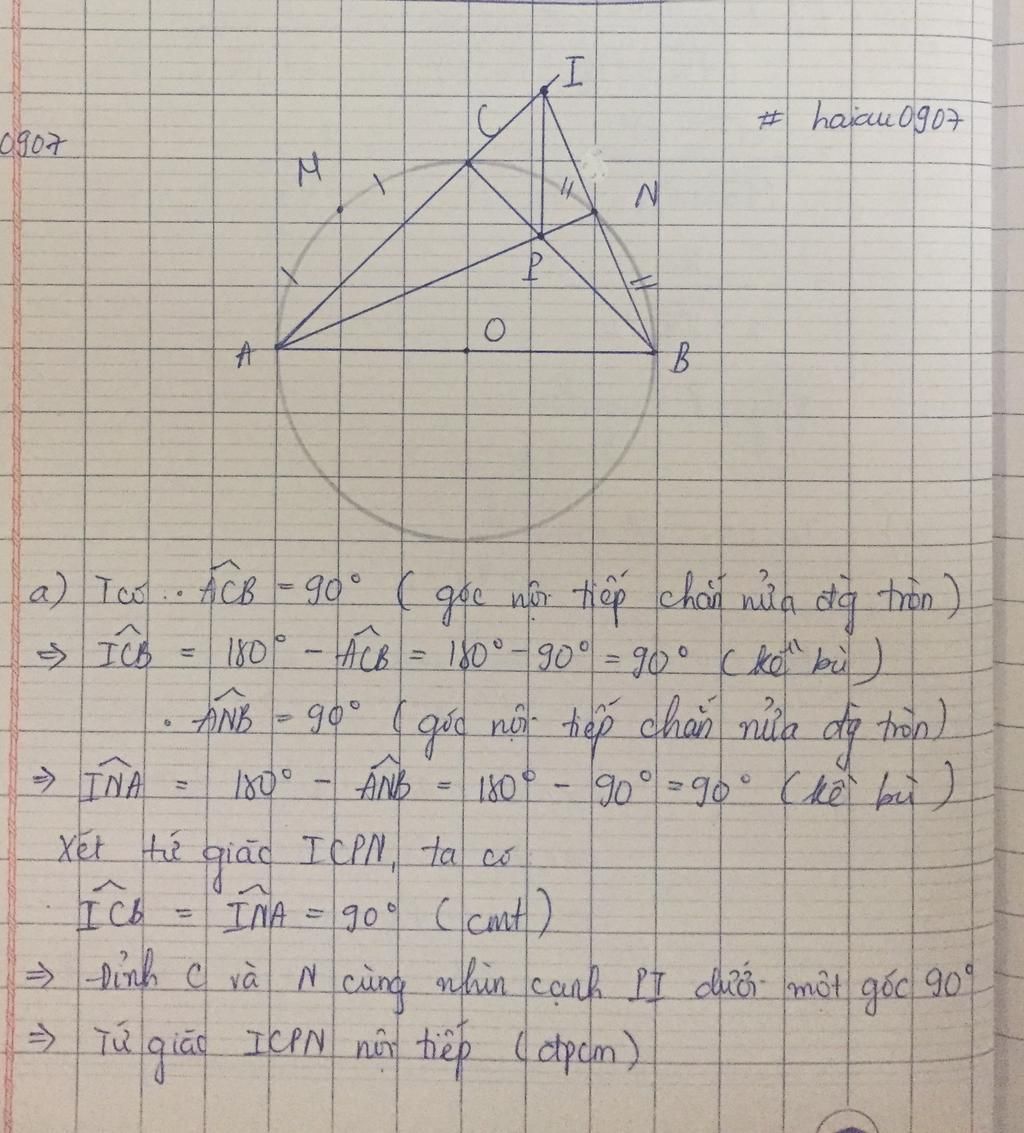 I
C
# haiau0907
0907
M
N
P
O
A
B
a) Ta có: • ACB = 90° ( góc nội tiếp chắn nửa đg tròn )
⇒ ICB = 180° - ACB = 180° - 90° = 90° ( kề bù )
• ANB = 90° ( góc nội tiếp chắn nửa đg tròn )
⇒ INA = 180° - ANB = 180° - 90° = 90° ( kề bù )
Xét tứ giác ICPN, ta có
ICB = INA = 90° ( cmt )
⇒ Đỉnh C và N cùng nhìn cạnh PI dưới một góc 90°
⇒ Tứ giác ICPN nội tiếp ( đpcm )